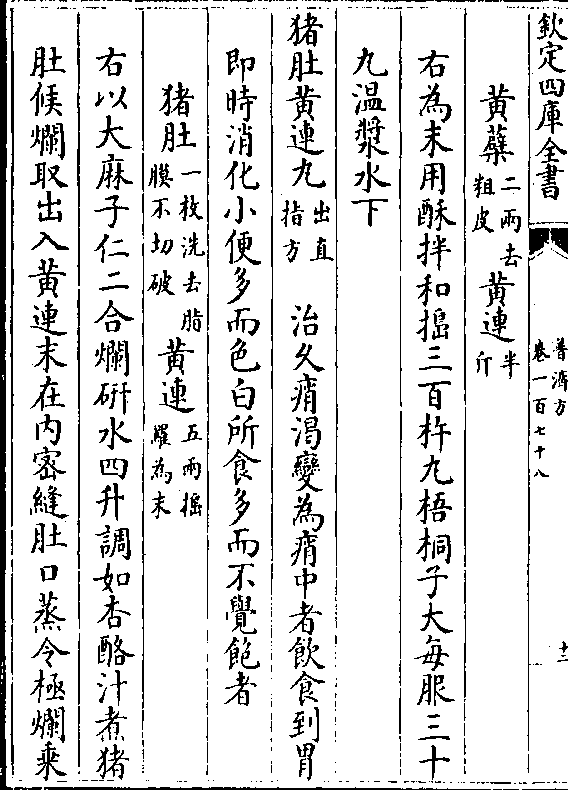 欽定四庫全書
普濟方
卷一百七十八
十三
黄蘗二兩去粗皮 黄連半斤
右為末用酥拌和搗三百杵丸梧桐子大每服三十
丸溫漿水下
猪肚黄連丸出直指方 治久痟渴變為痟中者飲食到胃
即時消化小便多而色白所食多而不覺飽者
猪肚一枚洗去脂膜不切破 黄連五兩搗羅為末
右以大麻子仁二合爛研水四升調如杏酪汁煮猪
肚候爛取出入黄連末在内密縫肚口蒸令極爛乘